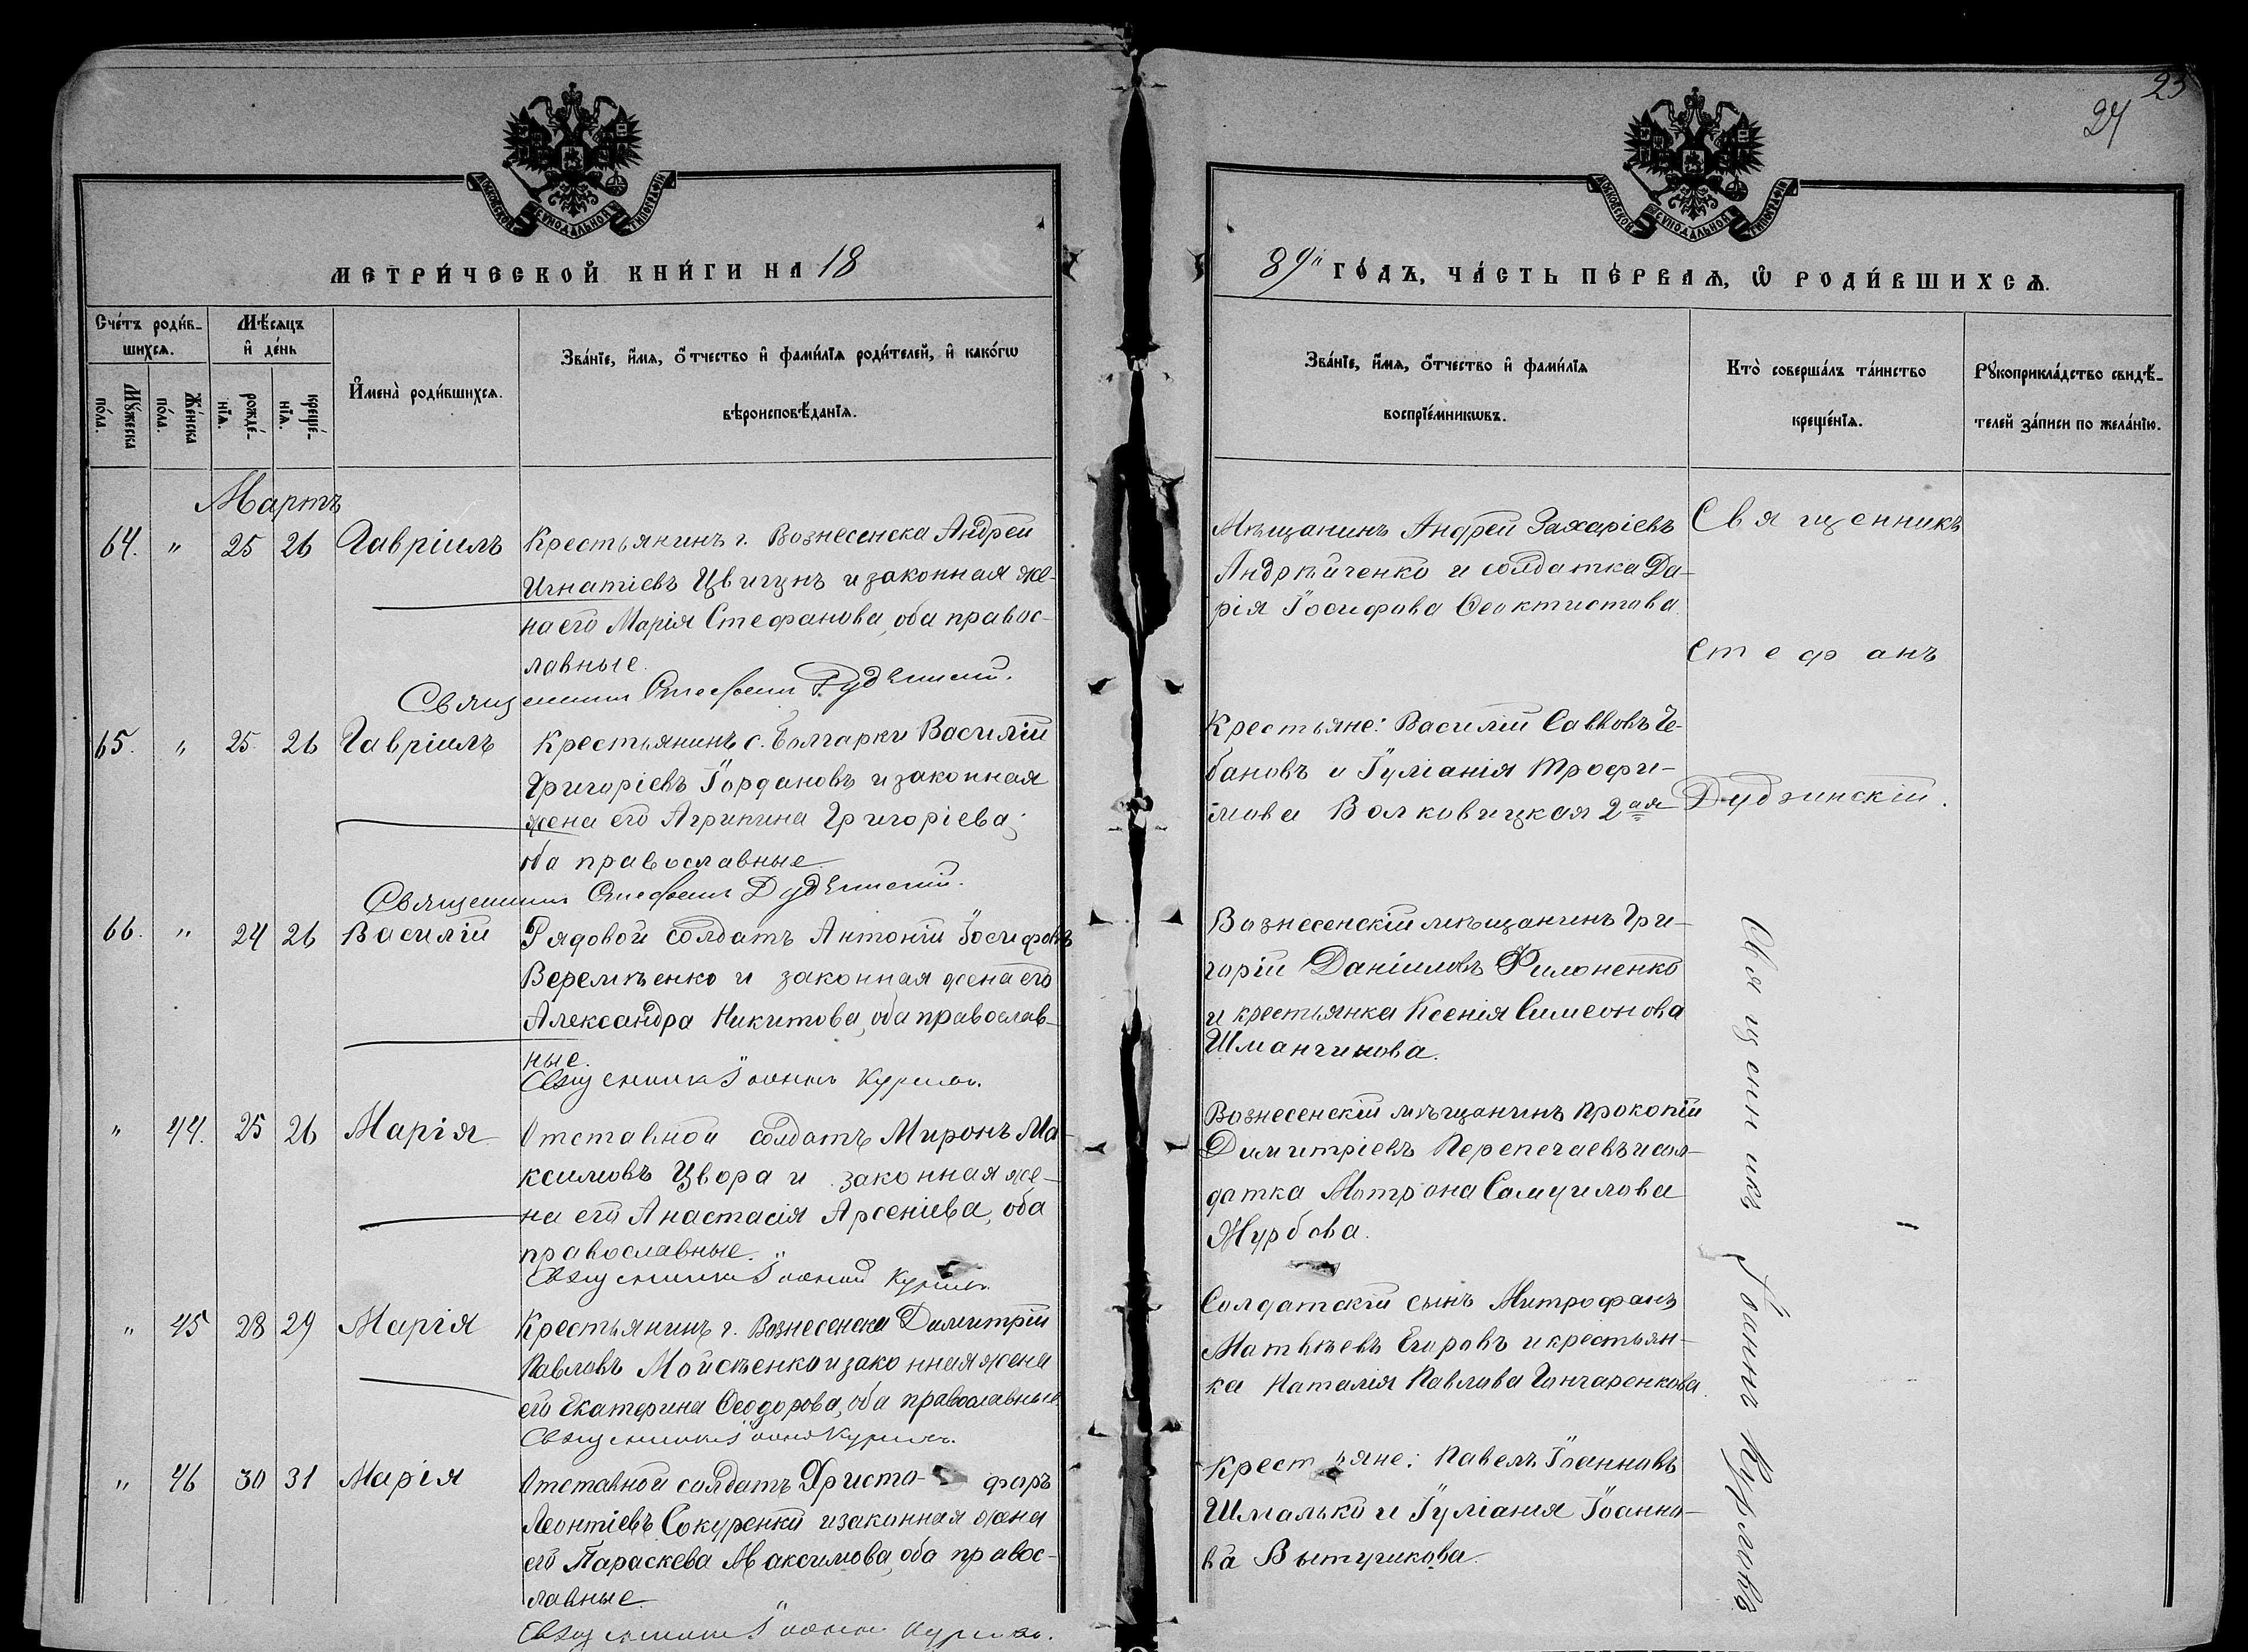 23
24
МОСКОВСКОЙ СУНОДАЛЬНОЙ ТИПОГРАФІИ
МОСКОВСКОЙ СУНОДАЛЬНОЙ ТИПОГРАФІИ
МЕТРИ́ЧЕСКОЙ КНИ́ГИ НА 18
89й ГО́ДЪ, ЧА́СТЬ ПЕ́РВАѦ, Ѡ҆ РОДИ́ВШИХСѦ.
Сче́тъ роди́в-
шихсѧ.
Мѣ́сѧцъ
и҆ де́нь
Мꙋ́жеска
по́ла.
Же́нска
по́ла.
рожде́-
нїѧ.
креще́-
нїѧ.
И҆мена̀ роди́вшихсѧ.
Зва́нїе, и҆́мѧ, о҆́тчество и҆ фами́лїѧ роди́телей, и҆ како́гѡ
вѣроисповѣ́данїѧ.
Зва́нїе, и҆́мѧ, о҆́тчество и҆ фами́лїѧ
воспрїе́мникѡвъ.
Кто̀ соверша́лъ та́инство
креще́нїѧ.
Рꙋкоприкла́дство свидѣ́-
телей за́писи по жела́нїю.
Мартъ
64. " 25 26 Гавріилъ Крестьянинъ г. Вознесенска Андрей
Игнатіевъ Цвигунъ и законная же-
на его Марія Стефанова, оба правос-
лавные.
Священникъ Стефанъ Дудзинскій.
Мѣщанинъ Андрей Захаріевъ
Андрѣйченко и солдатка Да-
рія Іосифова Ѳеоктистова
Священникъ
Стефанъ
Дудзинскій.
65. " 25 26 Гавріилъ Крестьянинъ с. Болгарки Василій
Григоріевъ Іордановъ и законная
жена его Агрипина Григоріева;
оба православные
Священникъ Стефанъ Дудзинскій.
Крестьяне: Василій Савковъ Че-
бановъ и Іуліанія Трофи-
мова Волковицкая 2ая
66. " 24 26 Василій Рядовой солдатъ Антоній Іосифовъ
Веремѣенко и законная жена его
Александра Никитова, оба православ-
ные.
Священникъ Іоаннъ Курловъ.
Вознесенскій мѣщанинъ Гри-
горій Даніиловъ Филоненко
и крестьянка Ксенія Симеонова
Шманчинова.
Священникъ Іоаннъ Курловъ
" 44. 25 26 Марія Отставной солдатъ Миронъ Ма-
ксимовъ Цвора и законная же-
на его Анастасія Арсеніева, оба
православные.
Священникъ Іоаннъ Курловъ.
Вознесенскій мѣщанинъ Прокопій
Димитріевъ Перепечаевъ и сол-
датка Мотрона Самуилова
Журбова.
" 45 28 29 Марія Крестьянинъ г. Вознесенска Димитрій
Павловъ Мойсѣенко и законная жена
его Екатерина Ѳеодорова, оба православные.
Священникъ Іоаннъ Курловъ.
Солдатскій сынъ Митрофанъ
Матвѣевъ Егоровъ и крестьян-
ка Наталія Павлова Гончаренкова.
" 46 30 31 Марія Отставной солдатъ Христо- форъ
Леонтіевъ Сокуренко и законная жена
его Параскева Максимова, оба правос-
лавные
Священникъ Іоаннъ Курловъ.
Крестьяне: Павелъ Іоанновъ
Шмалько и Іуліанія Іоанно-
ва Вытушкова.